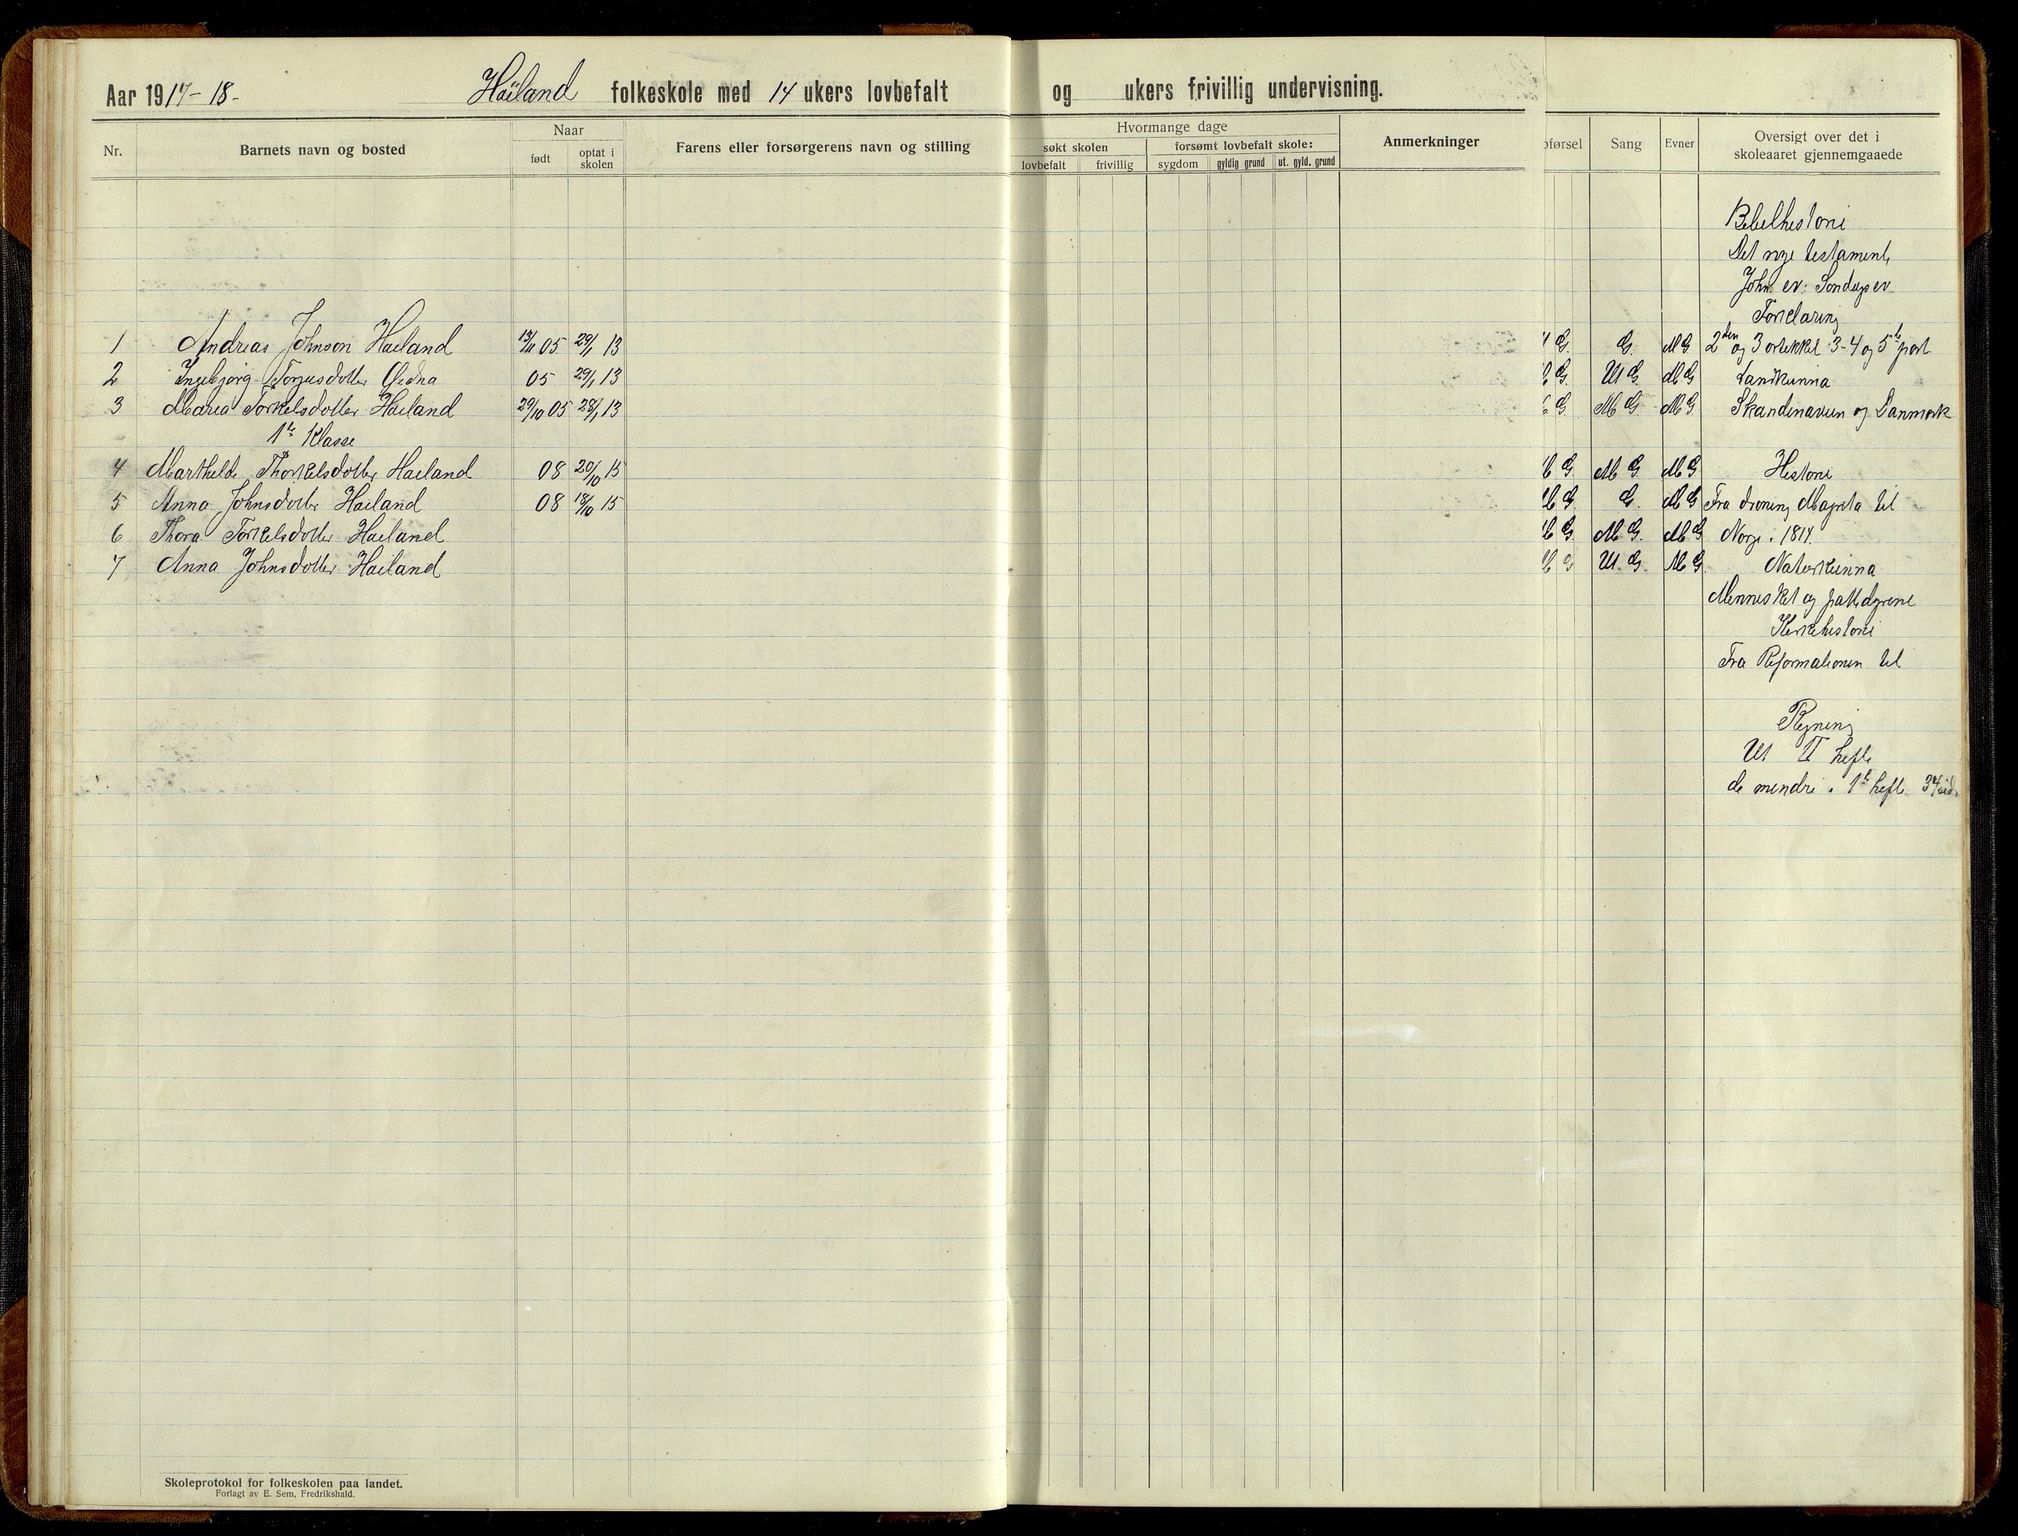 Aar 1917-18- Haïland folkeskole med 14 ukers lovbefalt og ukers frivillig undervisning.
Nr. Barnets navn og bosted Naar Farens eller forsørgerens navn og stilling Hvormange dage Anmerkninger
født optat i skolen
søkt skolen forsømt lovbefalt skole:
lovbefalt frivillig sygdom gyldig grund ut. gyld. grund
pførsel Sang Evner Oversigt over det i
skoleaaret gjennemgaaede
Bibelhistorie
Det nye testament,
John. ev. Søndags ev.
Forklaring
1 Andreas Johnson Haeland 13/11 05 29/1 13 G. G. MG 2den og 3 artikkel 3-4 og 5te part
2 Ingebjørg Torjusdotter Ødna 05 29/1 13 G. UG. MG Landkunna
3 Maria Torkelsdotter Haeland 29/10 05 28/1 13 G MG. MG Skandinavien og Danmark
1te Klasse
4 Marthilde Thorkelsdotter Haeland 08 20/10 15 MG MG MG Historie
5 Anna Johnsdotter Haeland 08 18/10 15 MG G. MG Fra droning Magreta til
6 Thora Torkelsdotter Haeland MG MG. MG Norge i 1814.
7 Anna Johnsdotter Haeland MG UG. MG Naturkunna
Mennesket og pattedyrene
Kirkehistorie
Fra Reformationen til
Regning
Ut II hefte
de mindre i 1te hefte 34 sid.
Skoleprotokol for folkeskolen paa landet.
Forlagt av E. Sem, Fredrikshald.